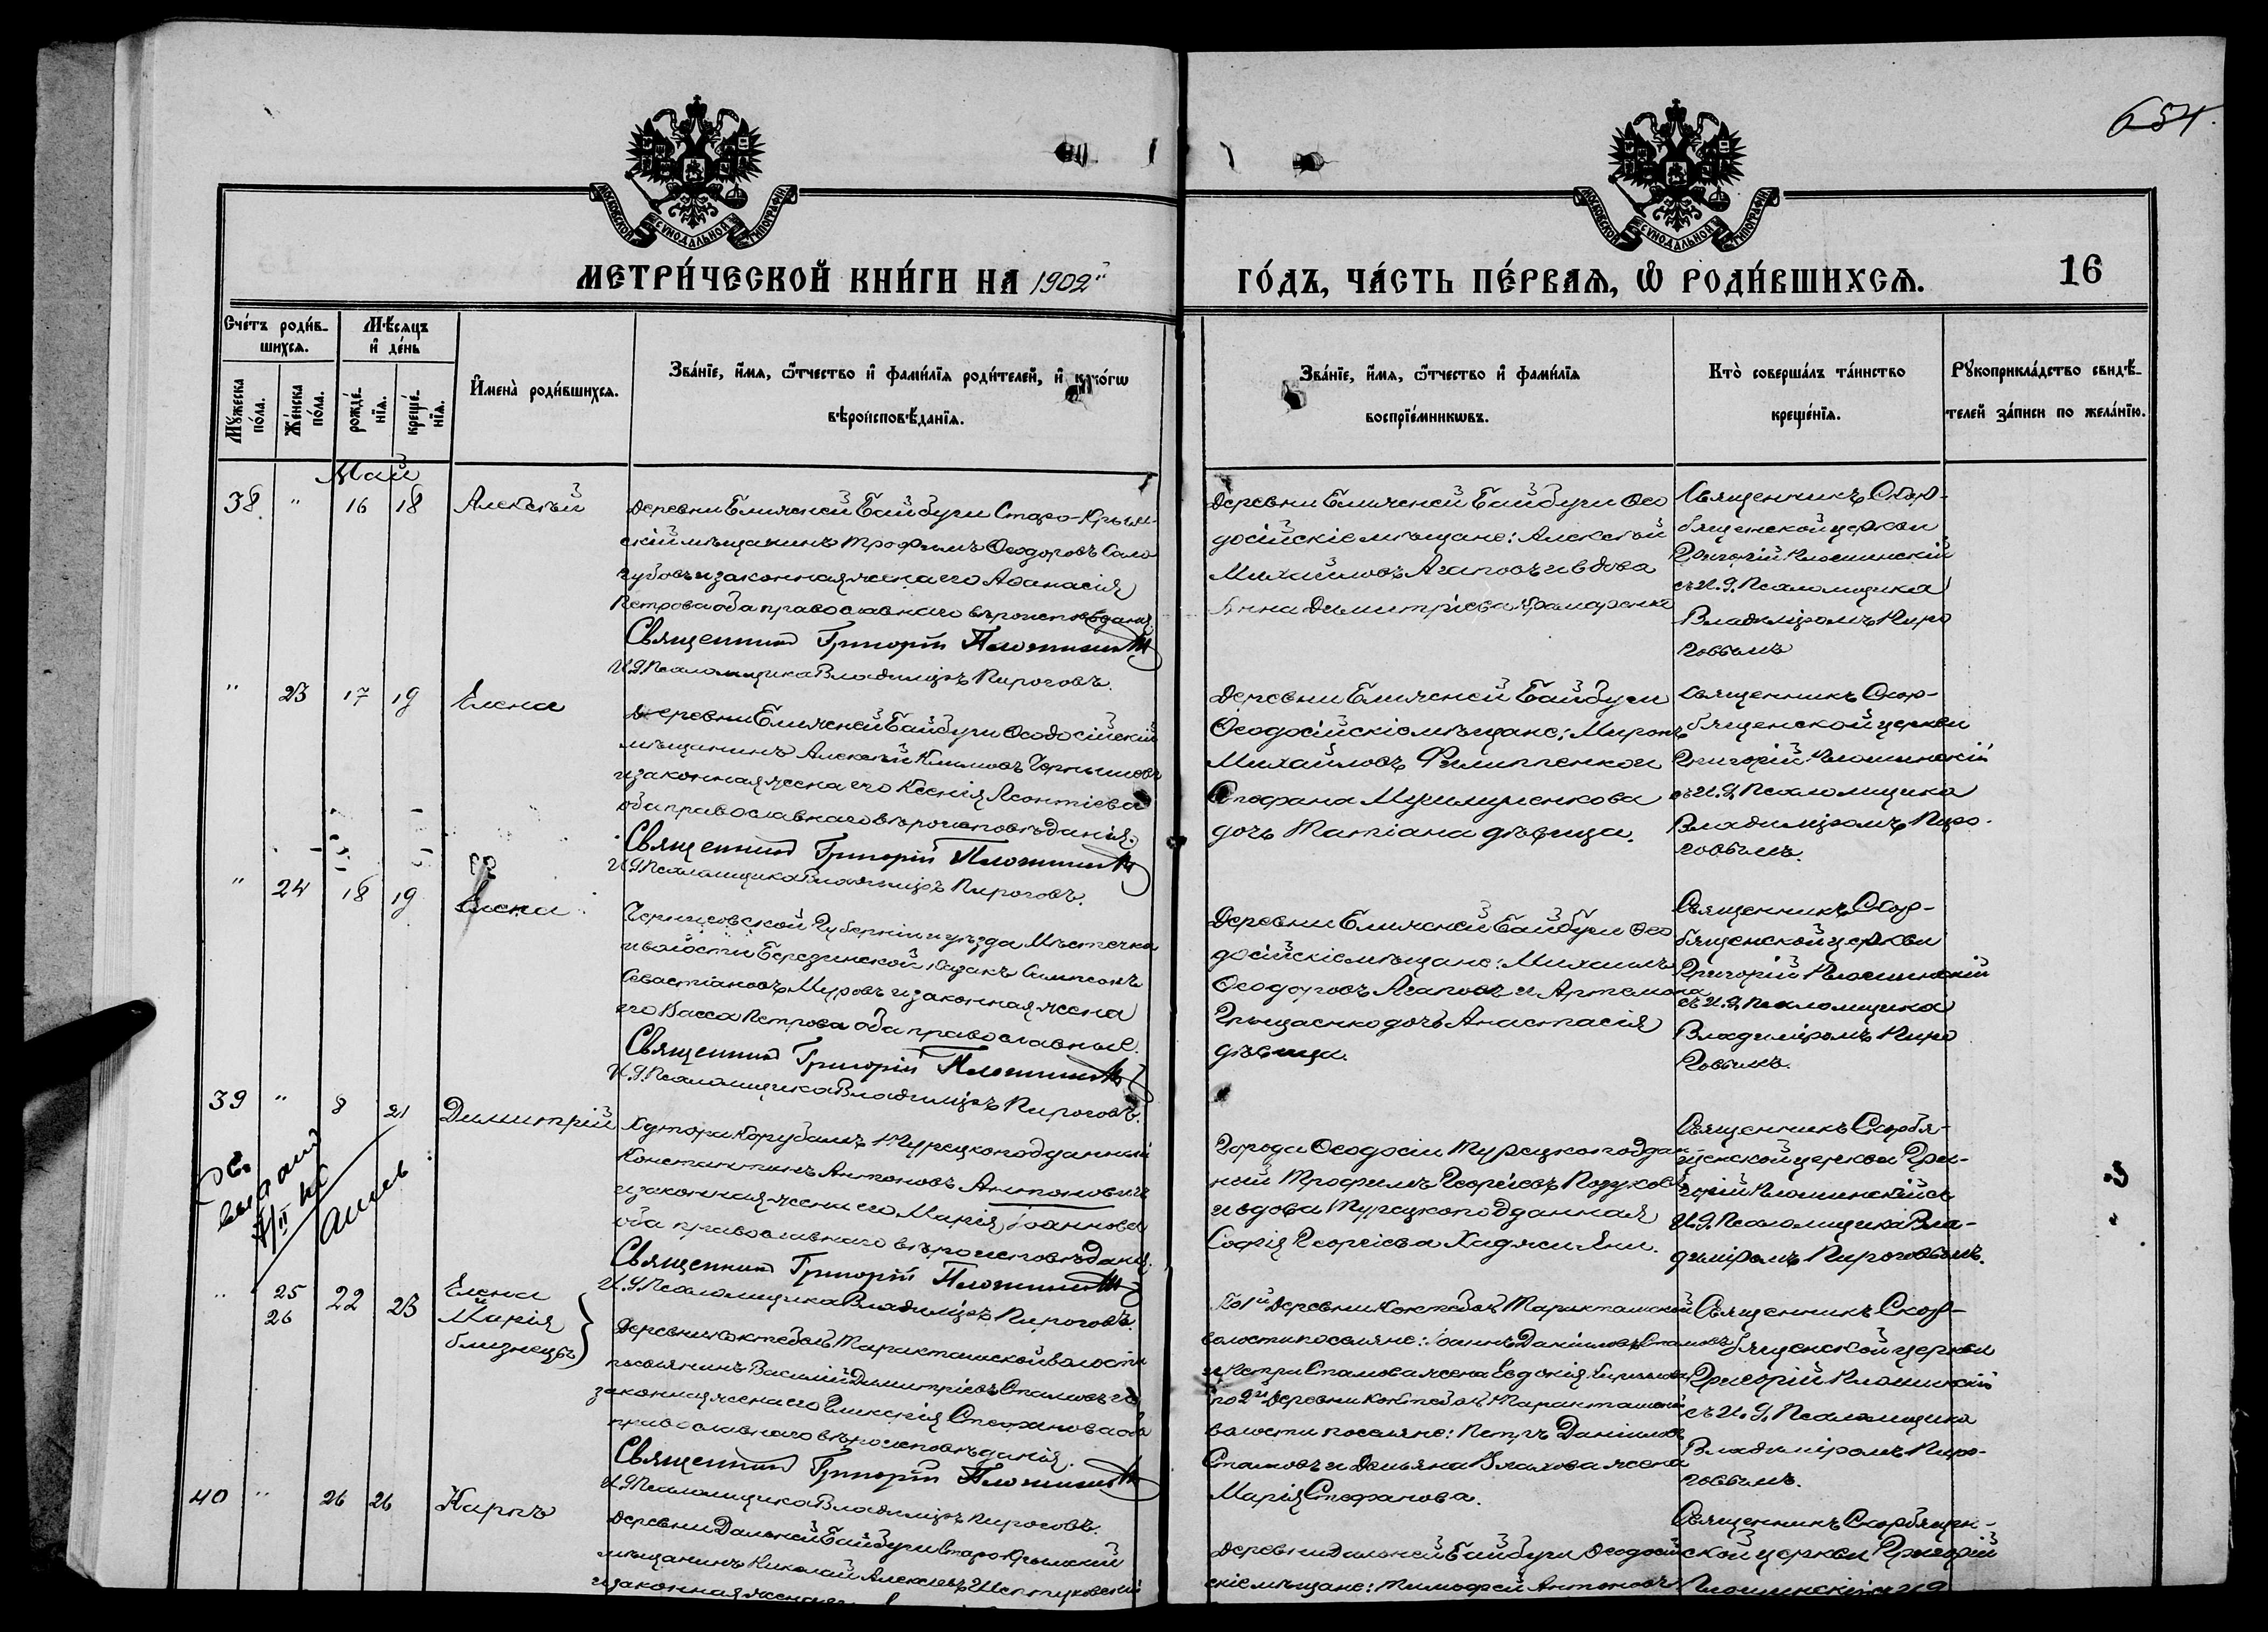 654.
МОСКОВСКОЙ СѴНОДАЛЬНОЙ ТИПОГРАФІИ
МОСКОВСКОЙ СѴНОДАЛЬНОЙ ТИПОГРАФІИ
МЕТРИ́ЧЕСКОЙ КНИ́ГИ НА 1902й
ГО́ДЪ, ЧА́СТЬ ПЕ́РВАЯ, Ѡ҆ РОДИ́ВШИХСѦ.
16
Сче́тъ роди́в-
шихсѧ.
Мꙋ́жеска
по́ла.
Же́нска
по́ла.
Мѣ́сяцъ
и҆ де́нь
рожде́-
нїѧ.
креще́-
нїѧ.
И҆мена̀ роди́вшихсѧ.
Зва́нїе, и҆́мѧ, ѻ҆́тчество и҆ фами́лїѧ роди́телей, и҆ како́гѡ
вѣроисповѣ́данїѧ.
Зва́нїе, и҆́мѧ, ѻ҆́тчество и҆ фами́лїѧ
воспрїе́мникѡвъ.
Кто̀ соверша́лъ та́инство
креще́нїѧ.
Рꙋкоприкла́дство свидѣ́-
телей за́писи по жела́нїю.
Май
38. " 16 18 Алексѣй
деревни Ближней Байбуги Старо-Крым-
скій мѣщанинъ Трофимъ Ѳеодоровъ Сало-
губовъ и законная жена его Аѳанасія
Петрова оба православнаго вѣроисповѣданія.
Священникъ Григорій Плошинскій
И.д. Псаломщика Владиміръ Пироговъ.
деревни Ближней Байбуги Ѳео
досійскіе мѣщане: Алексѣй
Михайловъ Агаповъ и вдова
Анна Димитріева
Священникъ Скор-
бященской церкви
Григорій Плошинскій
съ И.д. Псаломщика
Владиміромъ Пиро
говымъ
" 23 17 19 Елена
деревни Ближней Байбуги Ѳеодосійскій
мѣщанинъ Алексѣй Климовъ Чернышевъ
и законная жена его Ксенія Леонтіева
оба православнаго вѣроисповѣданія.
Священникъ Григорій Плошинскій
И.д. Псаломщика Владиміръ Пироговъ.
деревни Ближней Байбуги
Ѳеодосійскіе мѣщане: Миронъ
Михайловъ Филиппенко и
Стефана
дочь Татіана дѣвица.
Священникъ Скор-
бященской церкви
Григорій Плошинскій
съ И.д. Псаломщика
Владиміромъ Пиро-
говымъ.
" 24 18 19 Елена
Черниговской Губерніи и уѣзда Мѣстечка
и волости Березинской казакъ Симеонъ
Севастіановъ Муровъ и законная жена
его Васса Петрова оба православные.
Священникъ Григорій Плошинскій
И.д. Псаломщика Владиміръ Пироговъ.
деревни Ближней Байбуги Ѳео
досійскіе мѣщане: Михаилъ
Ѳеодоровъ Агаповъ и Артемона
Грищенко дочь Анастасія
дѣвица.
Священникъ Скор-
бященской церкви
Григорій Плошинскій
съ И.д. Псаломщика
Владиміромъ Пиро
говымъ.
39 " 8 21 Димитрій
Хутора Корубашъ Турецкоподданный
Константинъ Антоновъ Антоновичъ
и законная жена его Марія Іоаннова
оба православнаго вѣроисповѣданія.
Священникъ Григорій Плошинскій
И.д. Псаломщика Владиміръ Пироговъ.
Города Ѳеодосіи Турецкоподдан
ный Трофимъ Георгіевъ
и вдова Турецкоподданная
Софія Георгіева Хаджи Яни.
Священникъ Скорбя-
щенской церкви Гри-
горій Плошинскій съ
И.д. Псаломщика Вла-
диміромъ Пироговымъ.
" 25 26 22 23
Елена
и
Марія
близнецы
деревни Коктебель Таракташской волости
поселянинъ Василій Димитріевъ Стамовъ и
законная жена его Гликерія Стефанова оба
православнаго вѣроисповѣданія.
Священникъ Григорій Плошинскій
И.д. Псаломщика Владиміръ Пироговъ.
По 1й деревни Коктебель Таракташской
волости поселяне: Іоаннъ Даніиловъ Стамовъ
и Петра Стамова жена Евдокія
по 2й деревни Коктебель Таракташской
волости поселяне: Петръ Даніиловъ
Стамовъ и Демьяна Влахова жена
Марія Стефанова.
Священникъ Скор-
бященской церкви
Григорій Плошинскій
съ И.д. Псаломщика
Владиміромъ Пиро-
говымъ.
40 " 26 26 Карпъ
деревни Дальней Байбуги Старо Крымскій
мѣщанинъ Николай Алексѣевъ
и законная жена его
деревни Дальней Байбуги Ѳеодосій
скіе мѣщане: Тимофей Антоновъ
Священникъ Скорбящен-
ской церкви Григорій
Плошинскій съ И.д.